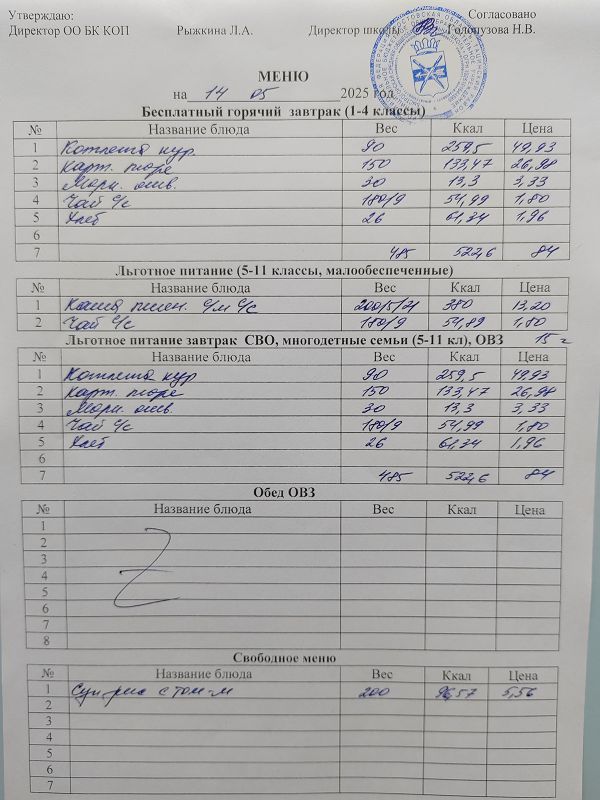 Утверждаю: Согласовано
Директор ОО БК КОП Рыжкина Л.А. Директор школы Голопузова Н.В.
МЕНЮ
на 14 05 2025 год
Бесплатный горячий завтрак (1-4 классы)
№ Название блюда Вес Ккал Цена
1 Котлета кур. 90 259,5 49,93
2 Карт. пюре 150 133,47 26,98
3 Морк. отв. 30 13,3 3,33
4 Чай с/с 180/9 54,99 1,80
5 Хлеб 26 61,34 1,96
6
7 485 522,6 84
Льготное питание (5-11 классы, малообеспеченные)
№ Название блюда Вес Ккал Цена
1 Каша пшен. с/м с/с 200/5/21 380 13,20
2 Чай с/с 180/9 54,89 1,80
Льготное питание завтрак СВО, многодетные семьи (5-11 кл), ОВЗ 15 =
№ Название блюда Вес Ккал Цена
1 Котлета кур 90 259,5 49,93
2 Карт. пюре 150 133,47 26,98
3 Морк. отв. 30 13,3 3,33
4 Чай с/с 180/9 54,99 1,80
5 Хлеб 26 61,34 1,96
6
7 485 522,6 84
Обед ОВЗ
№ Название блюда Вес Ккал Цена
1
2
3
4
5
6
7
8
Свободное меню
№ Название блюда Вес Ккал Цена
1 Суп рис с том-м 200 96,57 5,56
2
3
4
5
6
7